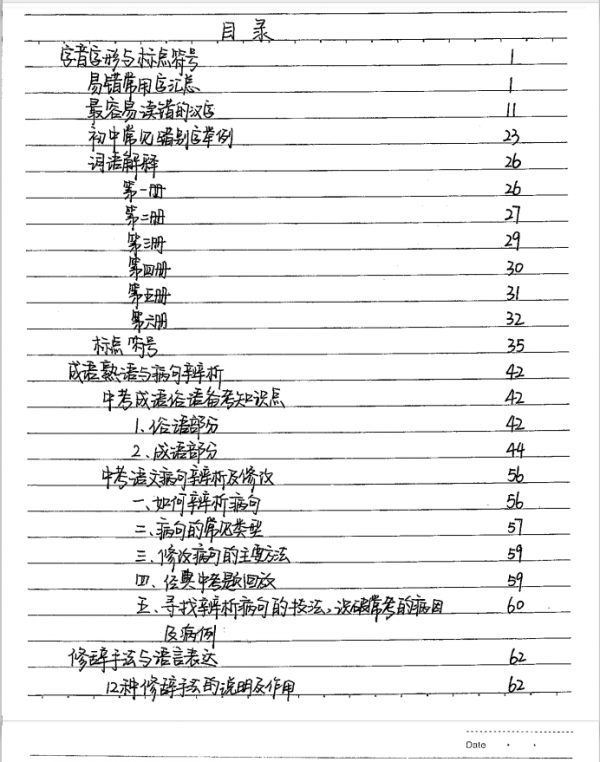 目录
字音字形与标点符号 1
易错常用字汇总 1
最容易读错的汉字 11
初中常见错别字举例 23
词语解释 26
第一册 26
第二册 27
第三册 29
第四册 30
第五册 31
第六册 32
标点符号 35
成语熟语与病句辨析 42
中考成语俗语备考知识点 42
1、俗语部分 42
2、成语部分 44
中考语文病句辨析及修改 56
一、如何辨析病句 56
二、病句的常见类型 57
三、修改病句的主要方法 59
四、经典中考题回放 59
五、寻找辨析病句的技法、说明常考的病因 60
及病例
修辞手法与语言表达 62
12种修辞手法的说明及作用 62
Date . .